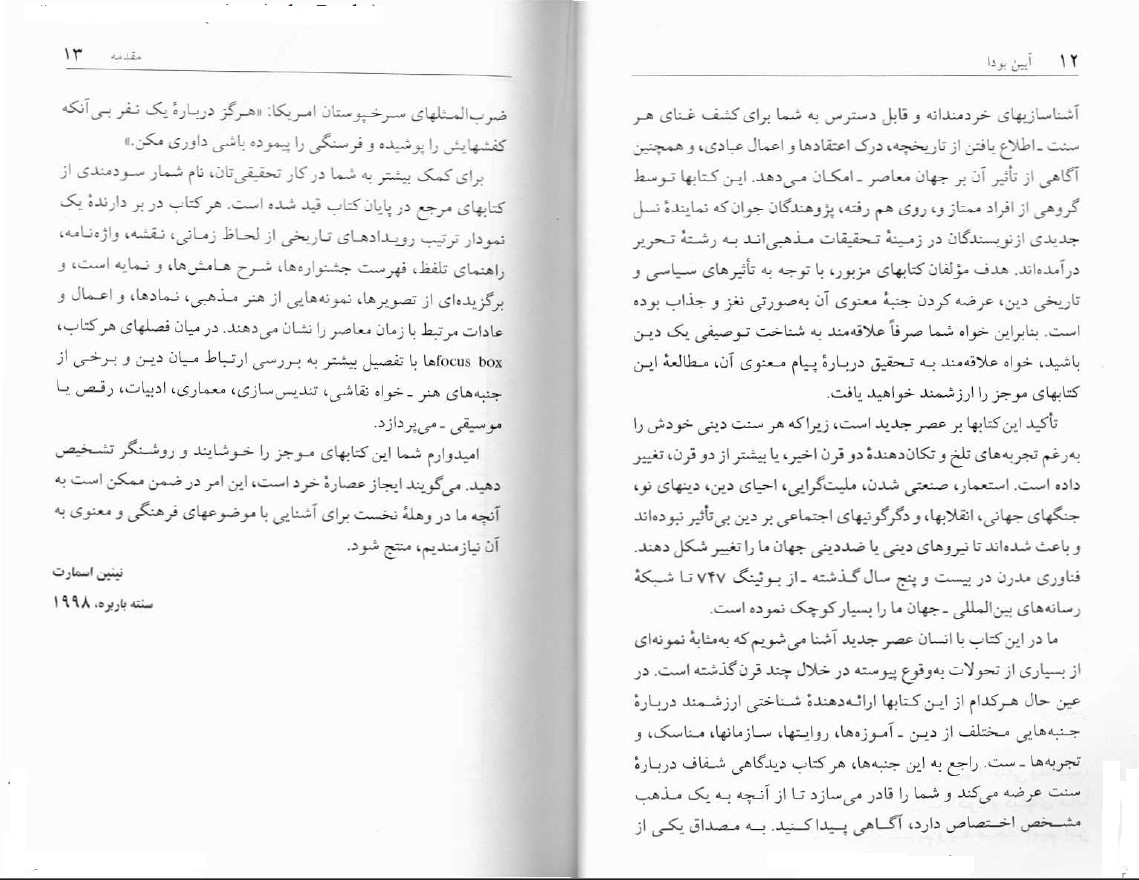 ۱۲ آیین بودا
آشناسازیهای خردمندانه و قابل دسترس به شما برای کشف غنای هر
سنت ـ اطلاع یافتن از تاریخچه، درک اعتقادها و اعمال عبادی، و همچنین
آگاهی از تأثیر آن بر جهان معاصر ـ امکان می‌دهد. این کتابها توسط
گروهی از افراد ممتاز و، روی هم رفته، پژوهندگان جوان که نمایندهٔ نسل
جدیدی از نویسندگان در زمینهٔ تحقیقات مذهبی‌اند به رشتهٔ تحریر
درآمده‌اند. هدف مؤلفان کتابهای مزبور، با توجه به تأثیرهای سیاسی و
تاریخی دین، عرضه کردن جنبهٔ معنوی آن به‌صورتی نغز و جذاب بوده
است. بنابراین خواه شما صرفاً علاقه‌مند به شناخت توصیفی یک دین
باشید، خواه علاقه‌مند به تحقیق دربارهٔ پیام معنوی آن، مطالعهٔ این
کتابهای موجز را ارزشمند خواهید یافت.
تأکید این کتابها بر عصر جدید است، زیرا که هر سنت دینی خودش را
به‌رغم تجربه‌های تلخ و تکان‌دهندهٔ دو قرن اخیر، یا بیشتر از دو قرن، تغییر
داده است. استعمار، صنعتی شدن، ملیت‌گرایی، احیای دین، دینهای نو،
جنگهای جهانی، انقلابها، و دگرگونیهای اجتماعی بر دین بی‌تأثیر نبوده‌اند
و باعث شده‌اند تا نیروهای دینی یا ضددینی جهان ما را تغییر شکل دهند.
فناوری مدرن در بیست و پنج سال گذشته ـ از بوئینگ ۷۴۷ تا شبکهٔ
رسانه‌های بین‌المللی ـ جهان ما را بسیار کوچک نموده است.
ما در این کتاب با انسان عصر جدید آشنا می‌شویم که به‌مثابهٔ نمونه‌ای
از بسیاری از تحولات به‌وقوع پیوسته در خلال چند قرن گذشته است. در
عین حال هرکدام از این کتابها ارائه‌دهندهٔ شناختی ارزشمند دربارهٔ
جنبه‌هایی مختلف از دین ـ آموزه‌ها، روایتها، سازمانها، مناسک، و
تجربه‌ها ـ ست. راجع به این جنبه‌ها، هر کتاب دیدگاهی شفاف دربارهٔ
سنت عرضه می‌کند و شما را قادر می‌سازد تا از آنچه به یک مذهب
مشخص اختصاص دارد، آگاهی پیدا کنید. به مصداق یکی از
مقدمه ۱۳
ضرب‌المثلهای سرخپوستان امریکا: «هرگز دربارهٔ یک نفر بی‌آنکه
کفشهایش را پوشیده و فرسنگی را پیموده باشی داوری مکن.»
برای کمک بیشتر به شما در کار تحقیقی‌تان، نام شمار سودمندی از
کتابهای مرجع در پایان کتاب قید شده است. هر کتاب در بر دارندهٔ یک
نمودار ترتیب رویدادهای تاریخی از لحاظ زمانی، نقشه، واژه‌نامه،
راهنمای تلفظ، فهرست جشنواره‌ها، شرح هامش‌ها، و نمایه است، و
برگزیده‌ای از تصویرها، نمونه‌هایی از هنر مذهبی، نمادها، و اعمال و
عادات مرتبط با زمان معاصر را نشان می‌دهند. در میان فصلهای هر کتاب،
focus boxها با تفصیل بیشتر به بررسی ارتباط میان دین و برخی از
جنبه‌های هنر ـ خواه نقاشی، تندیس‌سازی، معماری، ادبیات، رقص یا
موسیقی ـ می‌پردازد.
امیدوارم شما این کتابهای موجز را خوشایند و روشنگر تشخیص
دهید. می‌گویند ایجاز عصارهٔ خرد است، این امر در ضمن ممکن است به
آنچه ما در وهلهٔ نخست برای آشنایی با موضوعهای فرهنگی و معنوی به
آن نیازمندیم، منتج شود.
نینین اسمارت
سنته باربره، ۱۹۹۸